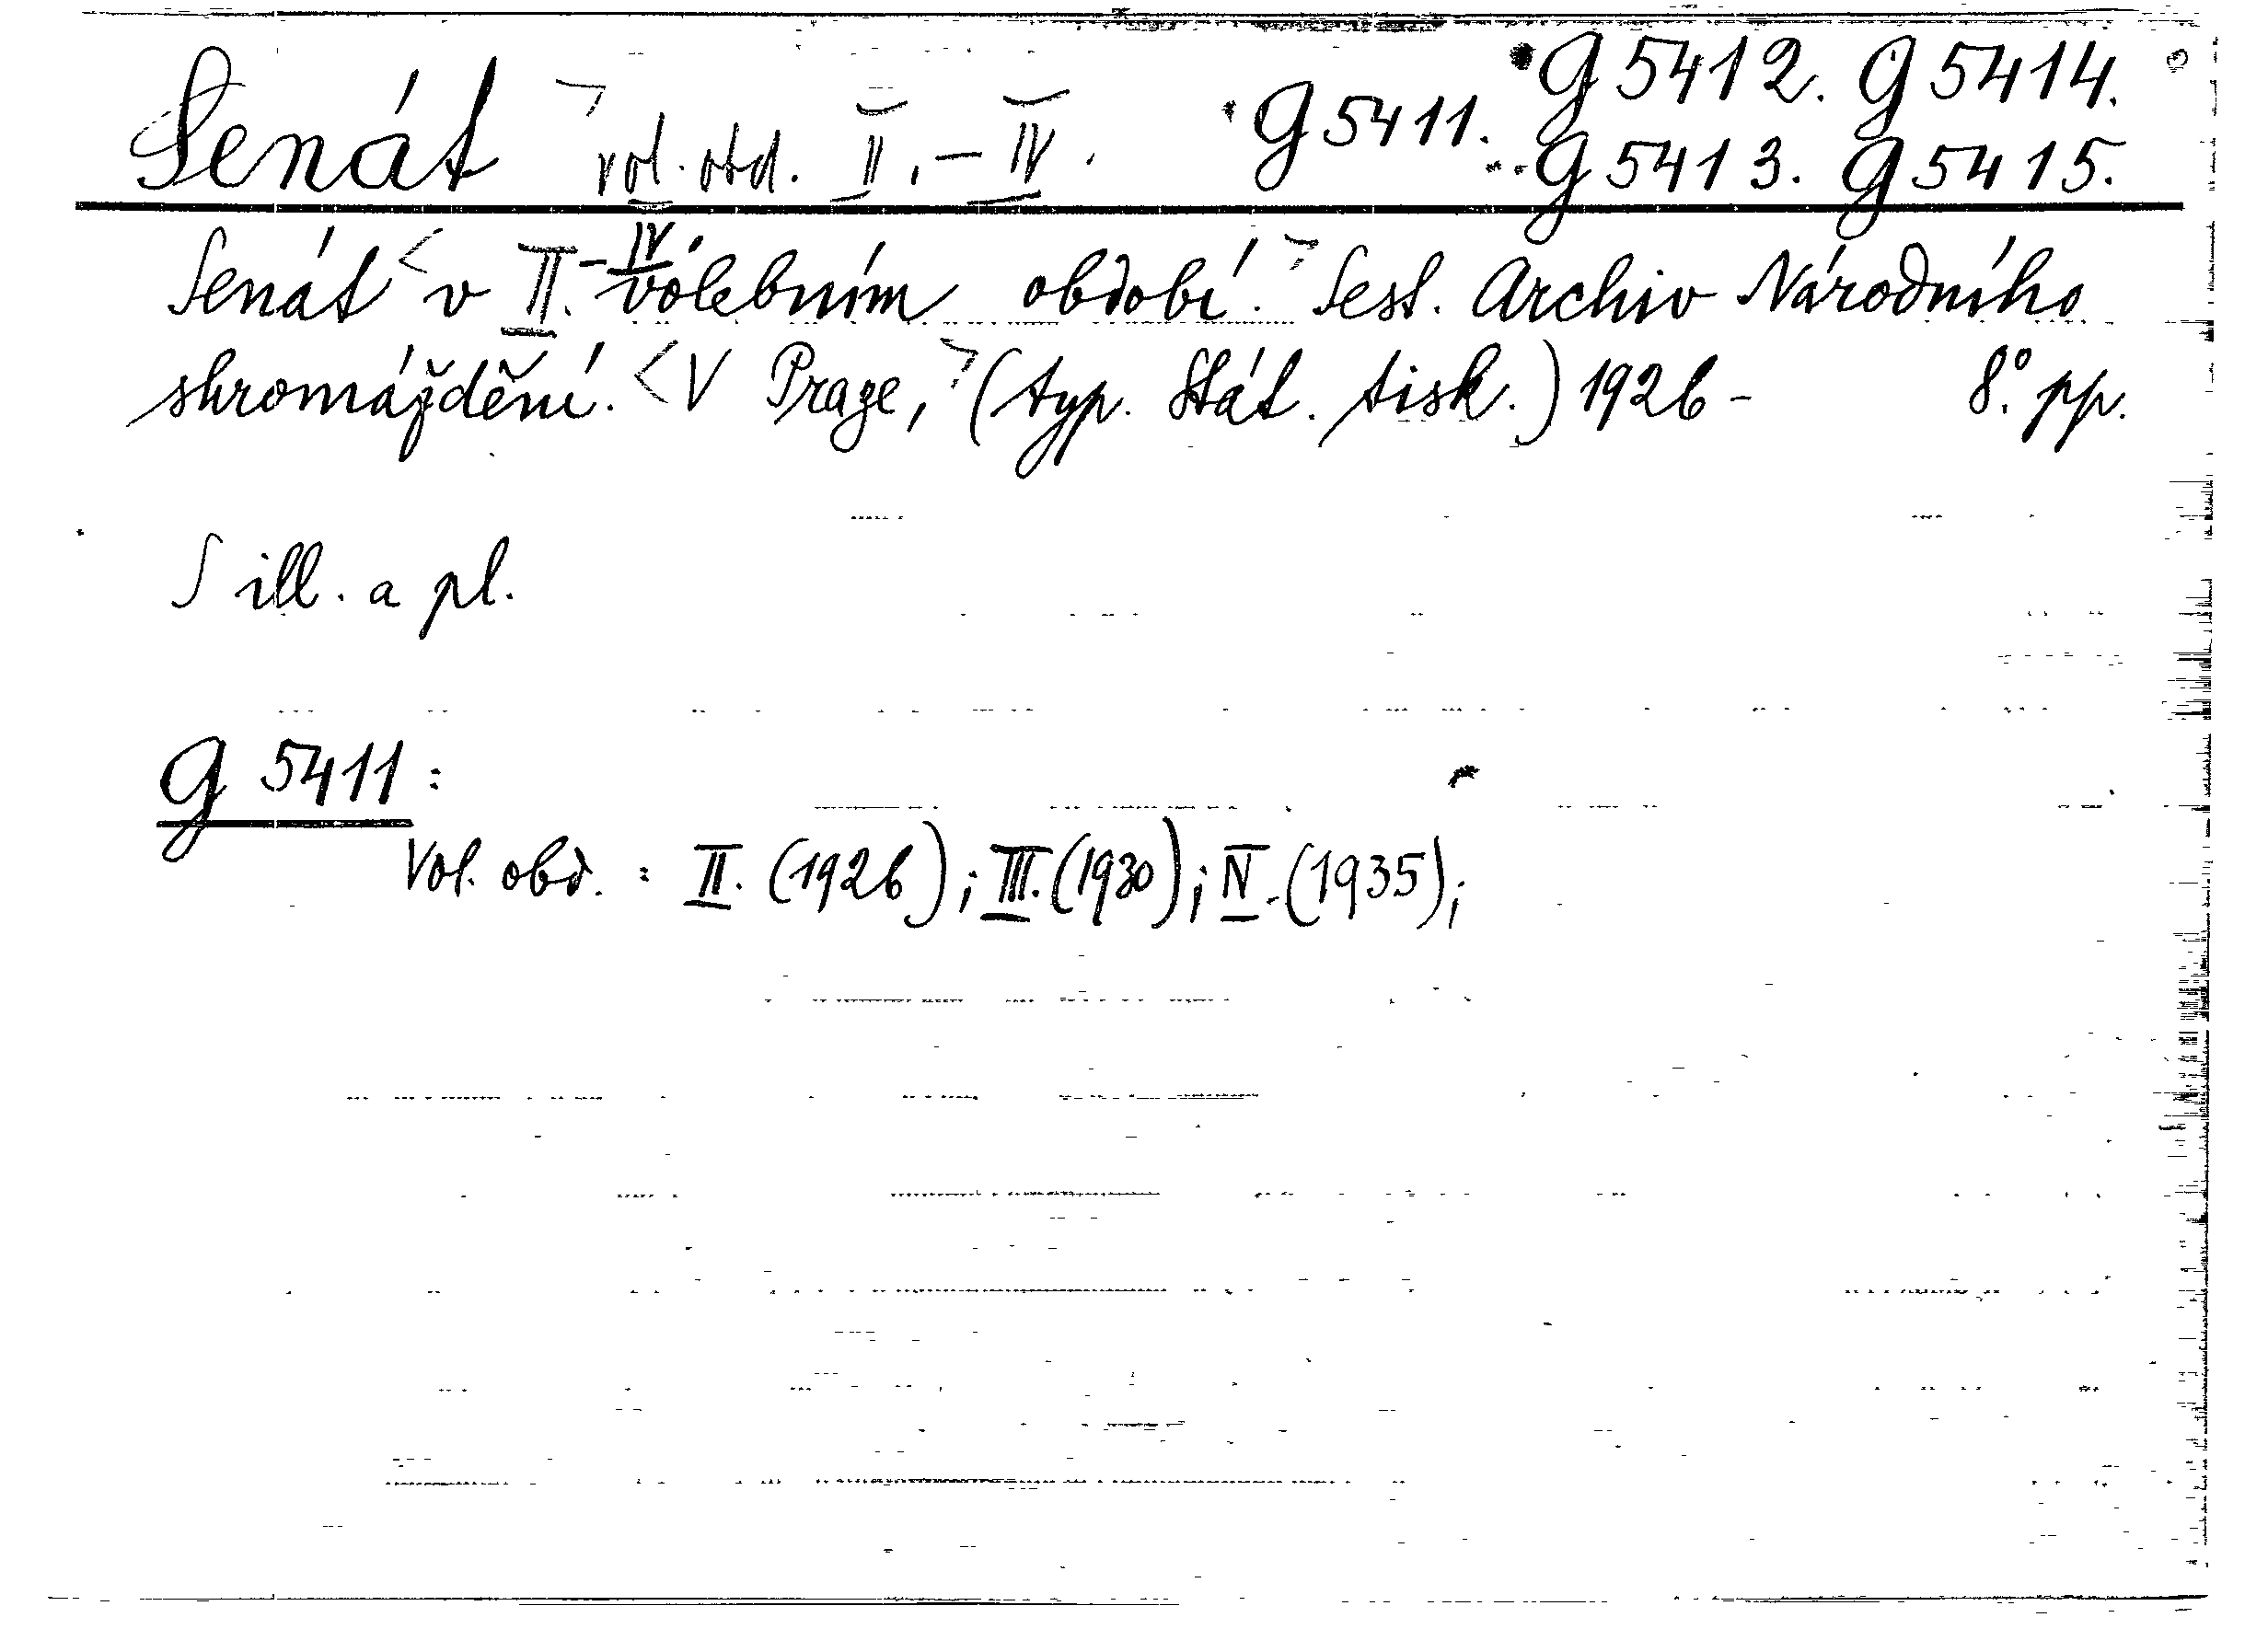 Senát ⌝ vol. obd. II.–IV. G 5411. G 5412. G 5414.
G 5413. G 5415.
Senát < v II.–IV. volebním období. ⌝ Sest. Archiv Národního
shromáždění. < V Praze, ⌝ (typ. Stát. tisk.) 1926 – 8°. pp.
S ill. a pl.
G 5411:
Vol. obd. : II. (1926); III. (1930); IV. (1935);